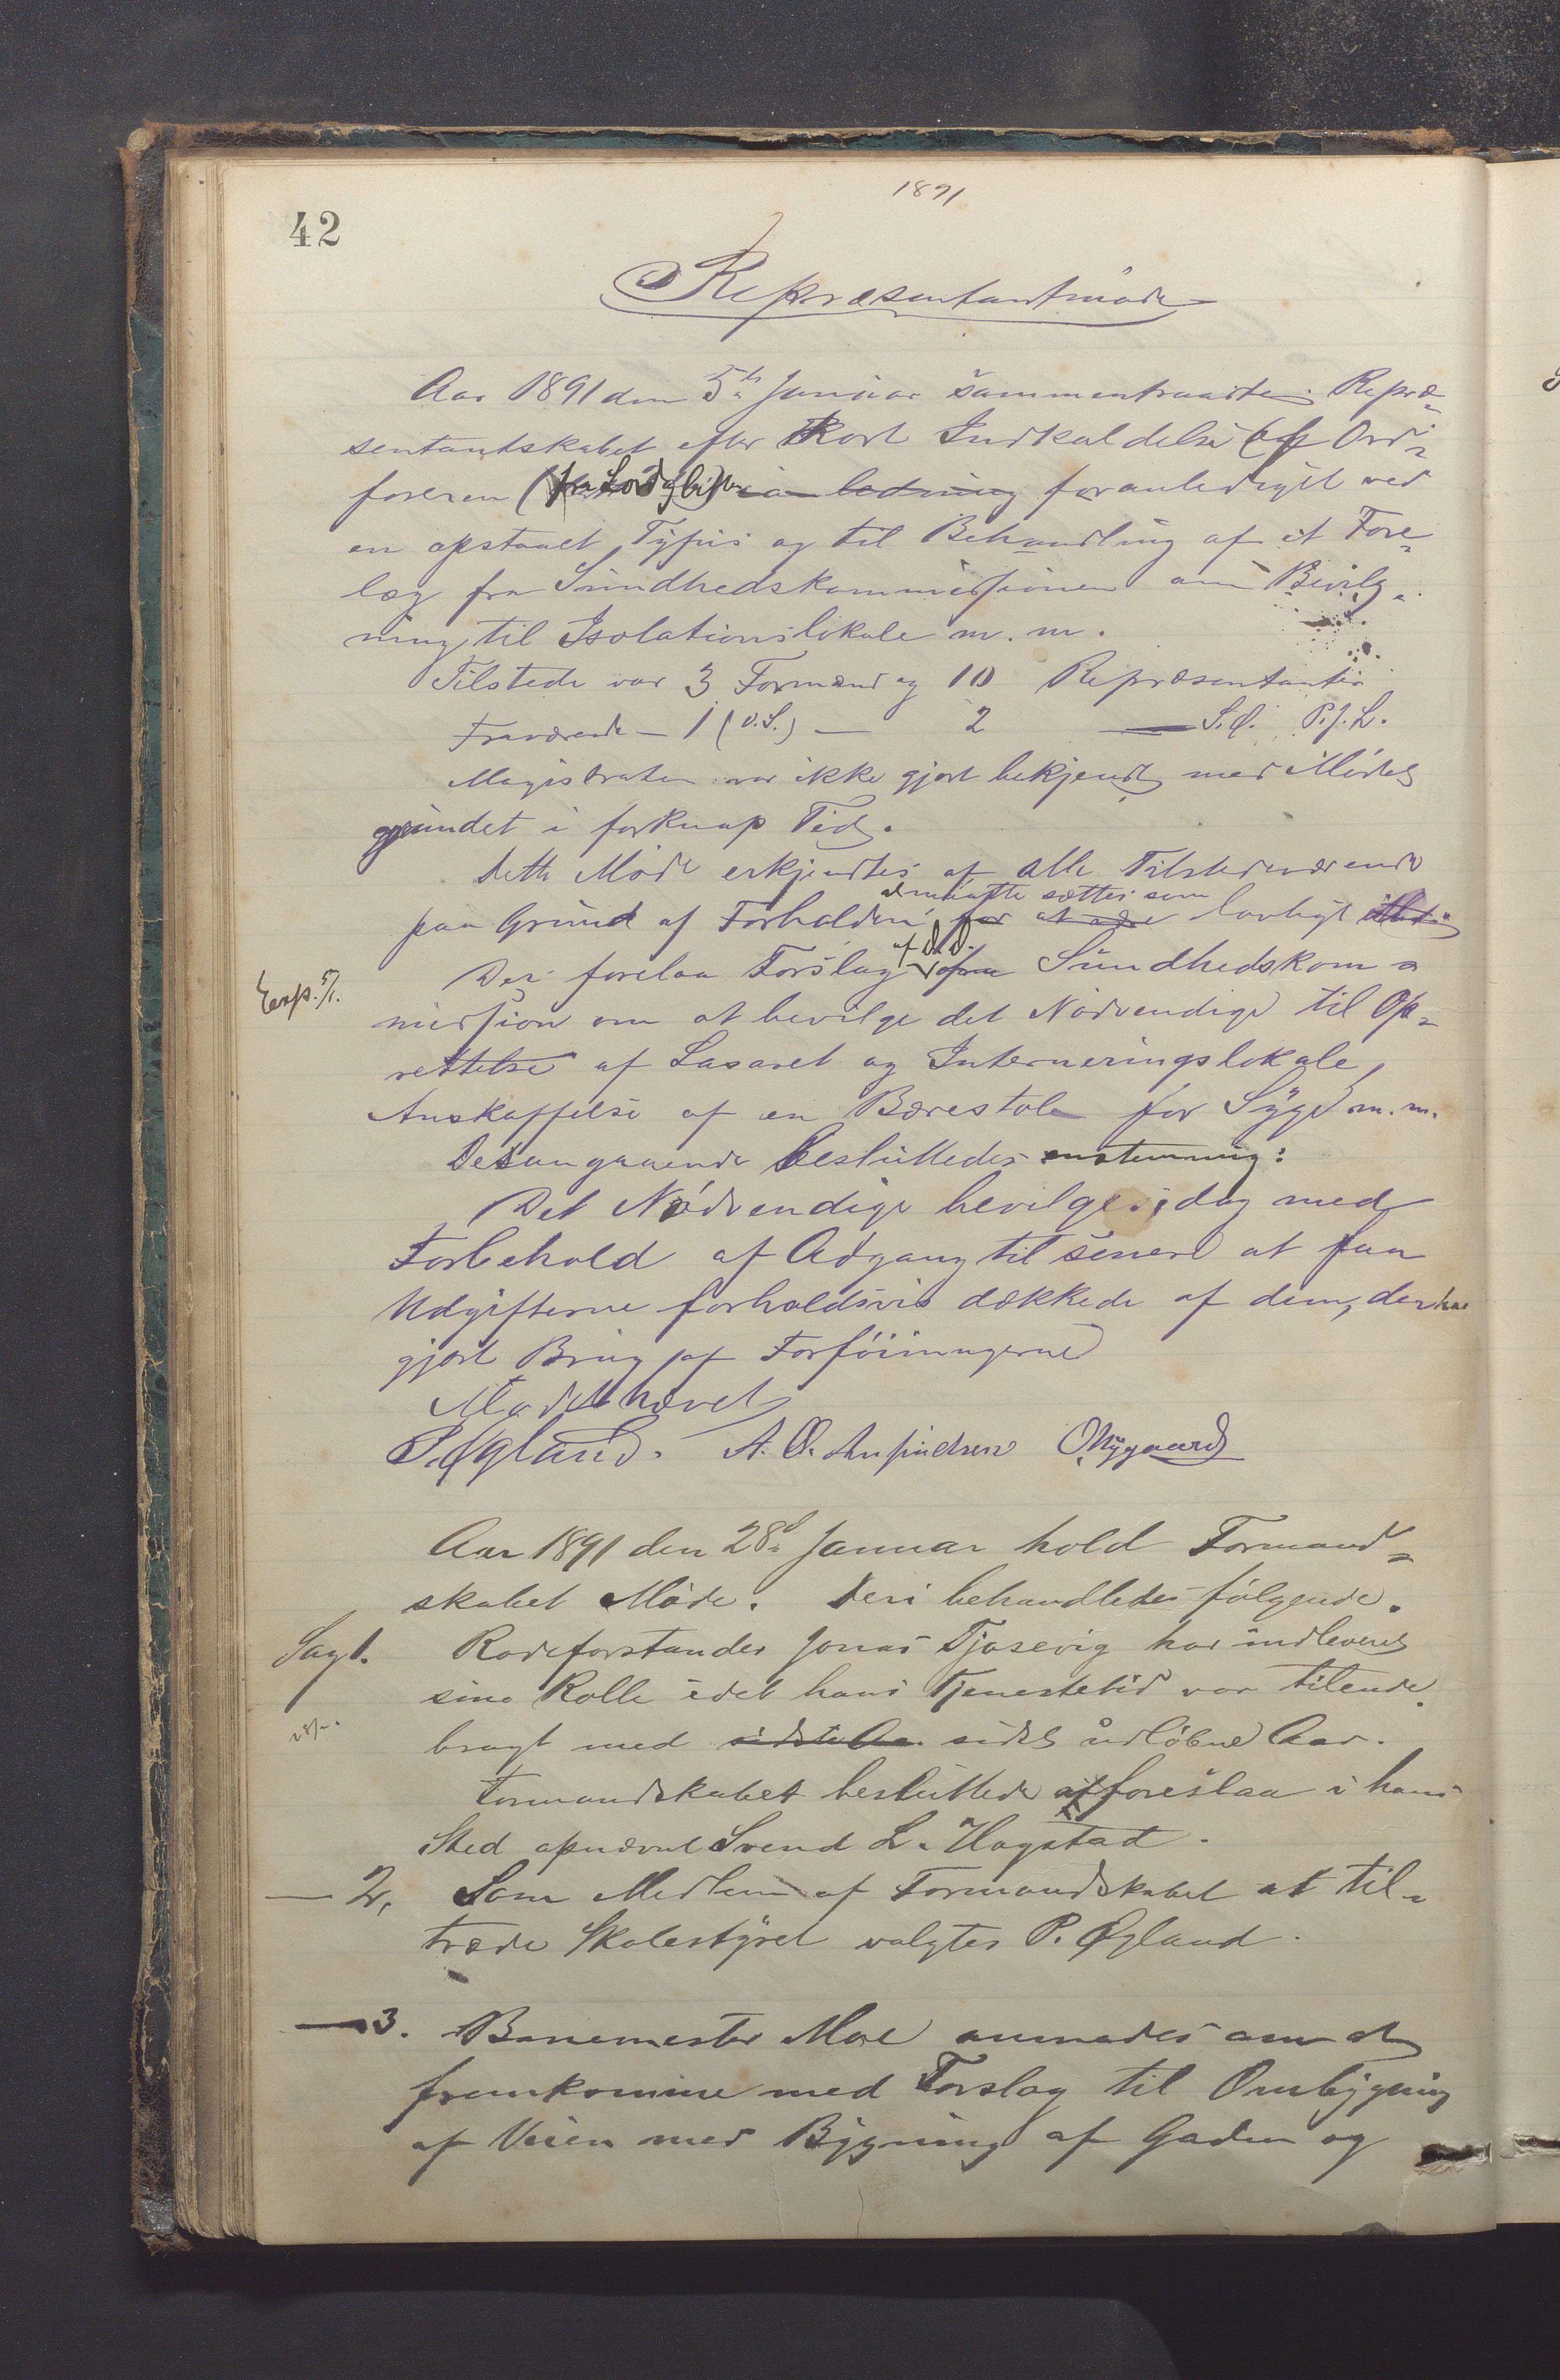 1891
42
Repræsentantmøde
Aar 1891 den 5te Januar sammentraadte Repræ-
sentantskabet efter Kort Indkaldelse af Ord-
føreren foranlediget ved
en opstaaet Tyfus og til Behandling af et Fore-
læg fra Sundhedskommissionen om Bevilg-
ning til Isolationslokale m. m.
Tilstede var 3 Formænd og 10 Repræsentanter
Fraværende — 1 (O.S.) — 2 — S.Q. P.J.L.
Magistraten var ikke gjort bekjendt med Mødet
grundet i forknap Tid.
Dette Møde erkjendtes af alle Tilstedeværende
sættes som
paa Grund af Forholdene for at være lovligt
af
Exp. 5/1. Der forelaa Forslag fra Sundhedskom-
mission om at bevilge det Nødvendige til Op-
rettelse af Lasaret og Interneringslokale,
Anskaffelse af en Bærestol for Syge m. m.
Desangaaende besluttedes enstemmig:
Det Nødvendige bevilges idag med
Forbehold af Adgang til senere at faa
Udgifterne forholdsvis dækkede af dem, der har
gjort Brug af Forføiningerne
Mødet hævet
P. Øgland. A. O. O Nygaard
Aar 1891 den 28de Januar hold Formand-
skabet Møde. Deri behandledes følgende.
Sag 1. Rodeforstander Jonas Tjosevig har indleveret
sine Rolle idet hans Tjenestetid var tilende-
bragt med sidste Aar sidst udløbne Aar.
Formandskabet besluttede at foreslaa i hans
Sted opnævnt Svend L. Hogstad.
— 2. Som Medlem af Formandskabet at til-
træde Skolestyret valgtes P. Øgland.
— 3. Banemester Moe anmodes om at
fremkomme med Forslag til Ombygning
af Veien med Bygning af Gaden og